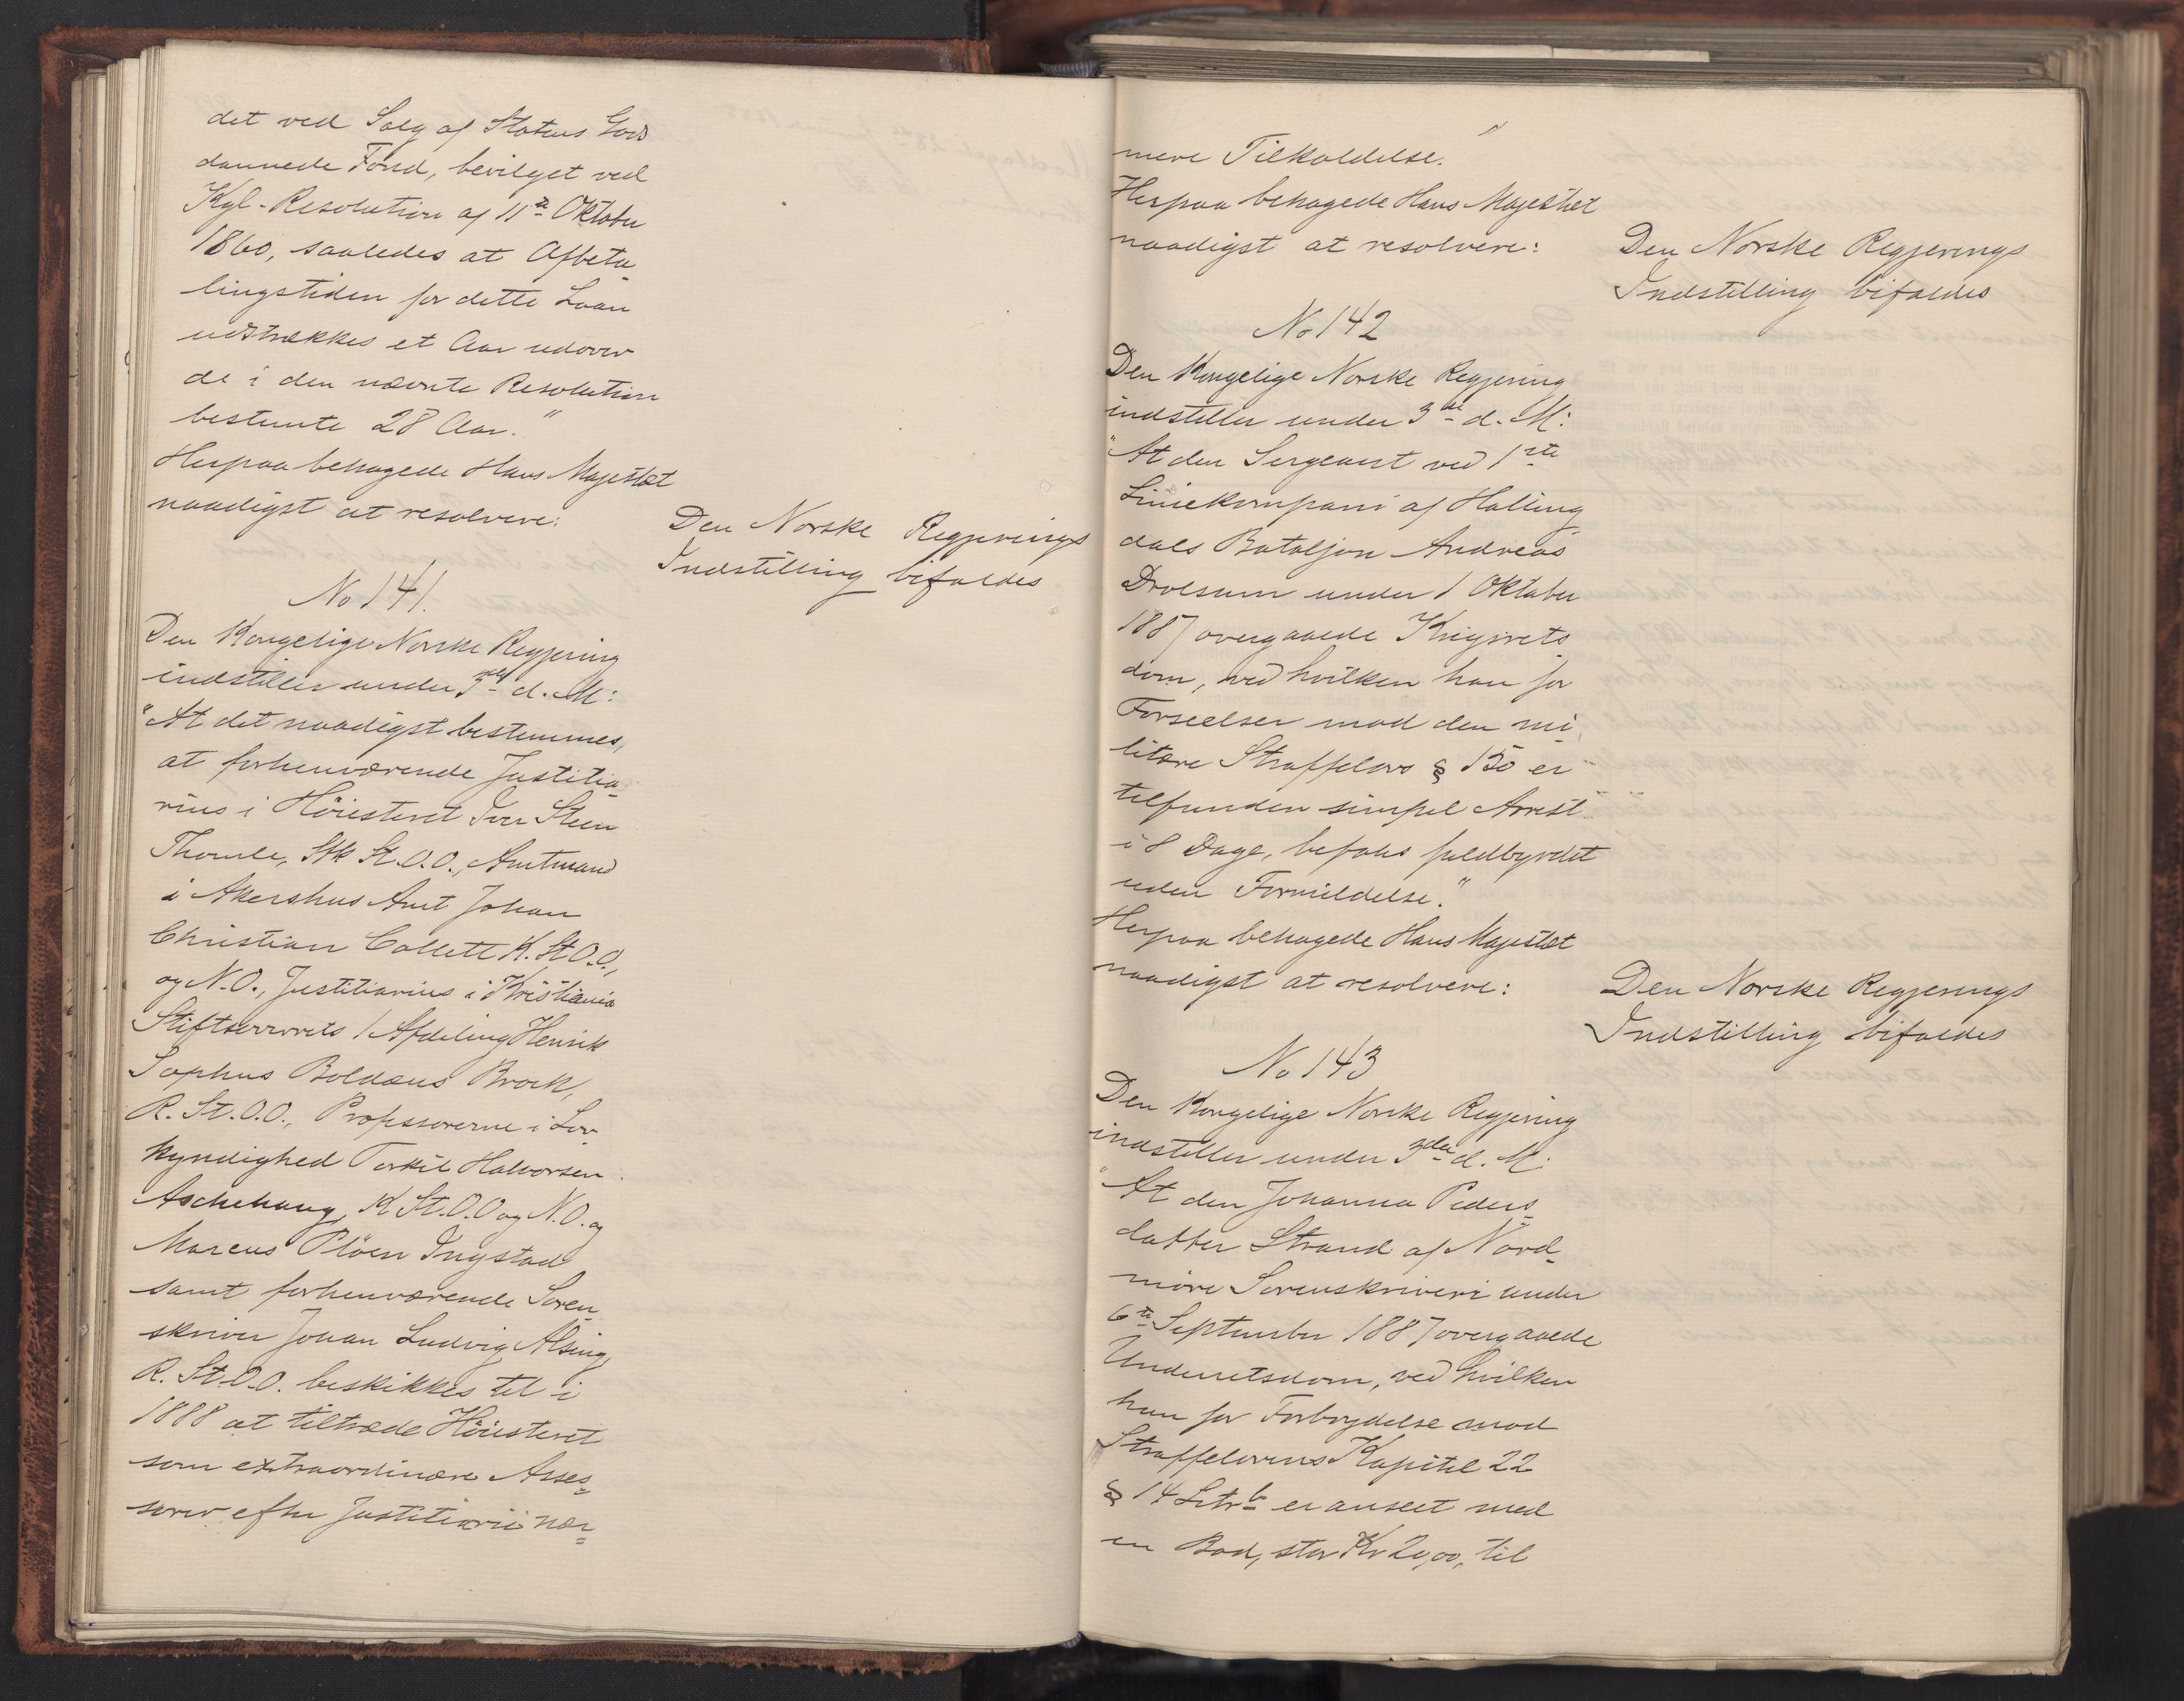 det ved Salg af Statens Gods
dannede Fond, bevilget ved
Kgl. Resolution af 11te Oktober
1860, saaledes at Afbeta-
lingstiden for dette Laan
udstrækkes et Aar udover
de i den nævnte Resolution
bestemte 28 Aar."
Herpaa behagede Hans Majestæt
naadigst at resolvere:
Den Norske Regjerings
Indstilling bifaldes
No 141.
Den Kongelige Norske Regjering
indstiller under 3die d. M:
"At det naadigst bestemmes,
at forhenværende Justitia-
rius i Höiesteret Iver Steen
Thomle, Stk St. O. O., Amtmand
i Akershus Amt Johan
Christian Collett K. St. O. O.,
og N. O., Justitiarius i Kristiania
Stiftsoverrets 1 Afdeling Henrik
Sophus Boldæus Brock,
R. St. O. O., Professorerne i Lov-
kyndighed Torkil Halvorsen
Aschehoug, K St. O. O og N. O. og
Marcus Plöen Ingstad
samt forhenværende Soren-
skriver Johan Ludvig Alsing,
R. St. O. O. beskikkes til i
1888 at tiltræde Höiesteret
som extraordinære Asses-
sorer efter Justitiarii nær-
mere Tilkaldelse."
Herpaa behagede Hans Majestæt
naadigst at resolvere:
Den Norske Regjerings
Indstilling bifaldes
No 142
Den Kongelige Norske Regjering
indstiller under 3die d. M:
"At den Sergeant ved 1ste
Liniekompani af Halling-
dals Bataljon Andreas
Drolsum under 1 Oktober
1887 overgaaede Krigsrets-
dom, ved hvilken han for
Forseelser mod den mi-
litære Straffelovs § 150 er
tilfunden simpel Arrest
i 8 Dage, befales fuldbyrdet
uden Formildelse."
Herpaa behagede Hans Majestæt
naadigst at resolvere:
Den Norske Regjerings
Indstilling bifaldes
No 143
Den Kongelige Norske Regjering
indstiller under 3die d. M:
"At den Johanna Peders-
datter Strand af Nord-
möre Sorenskriveri under
6te September 1887 overgaaede
Underretsdom, ved hvilken
hun for Forbrydelse mod
Straffelovens Kapitel 22
§ 14 Litr b er anseet med
en Bod, stor Kr 20,00, til